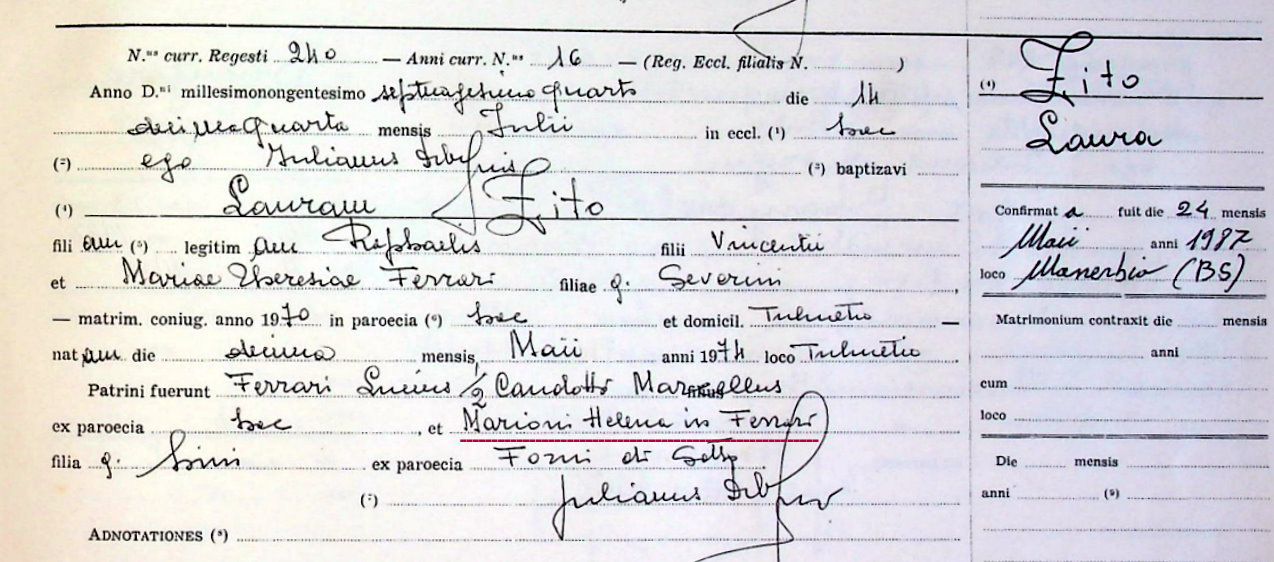 N.us curr. Regesti 240 — Anni curr. N.us 16 — (Reg. Eccl. filialis N. )
Anno D.ni millesimonongentesimo septuagesimo quarto die 14
decimaquarta mensis Julii in eccl. (1) hac
(2) ego Julianus (3) baptizavi
(4) Lauram Zito
fili am (5) legitim am Raphaelis filii Vincentii
et Mariae Theresiae Ferrari filiae q. Severini ,
— matrim. coniug. anno 1970 in paroecia (6) hac et domicil. Tulmetio —
nat am die decima mensis Maii anni 1974 loco Tulmetio .
Patrini fuerunt Ferrari Lucius 1/2 Candotti Marcellus filius
ex paroecia hac , et Marioni Helena in Ferrari
filia q. ex paroecia Forni di Sotto
(7) Julianus
ADNOTATIONES (8)
(4) Zito
Laura
Confirmat a fuit die 24 mensis
Maii anni 1987
loco Manerbio (BS)
Matrimonium contraxit die mensis
anni
cum
loco
Die mensis
anni (9)